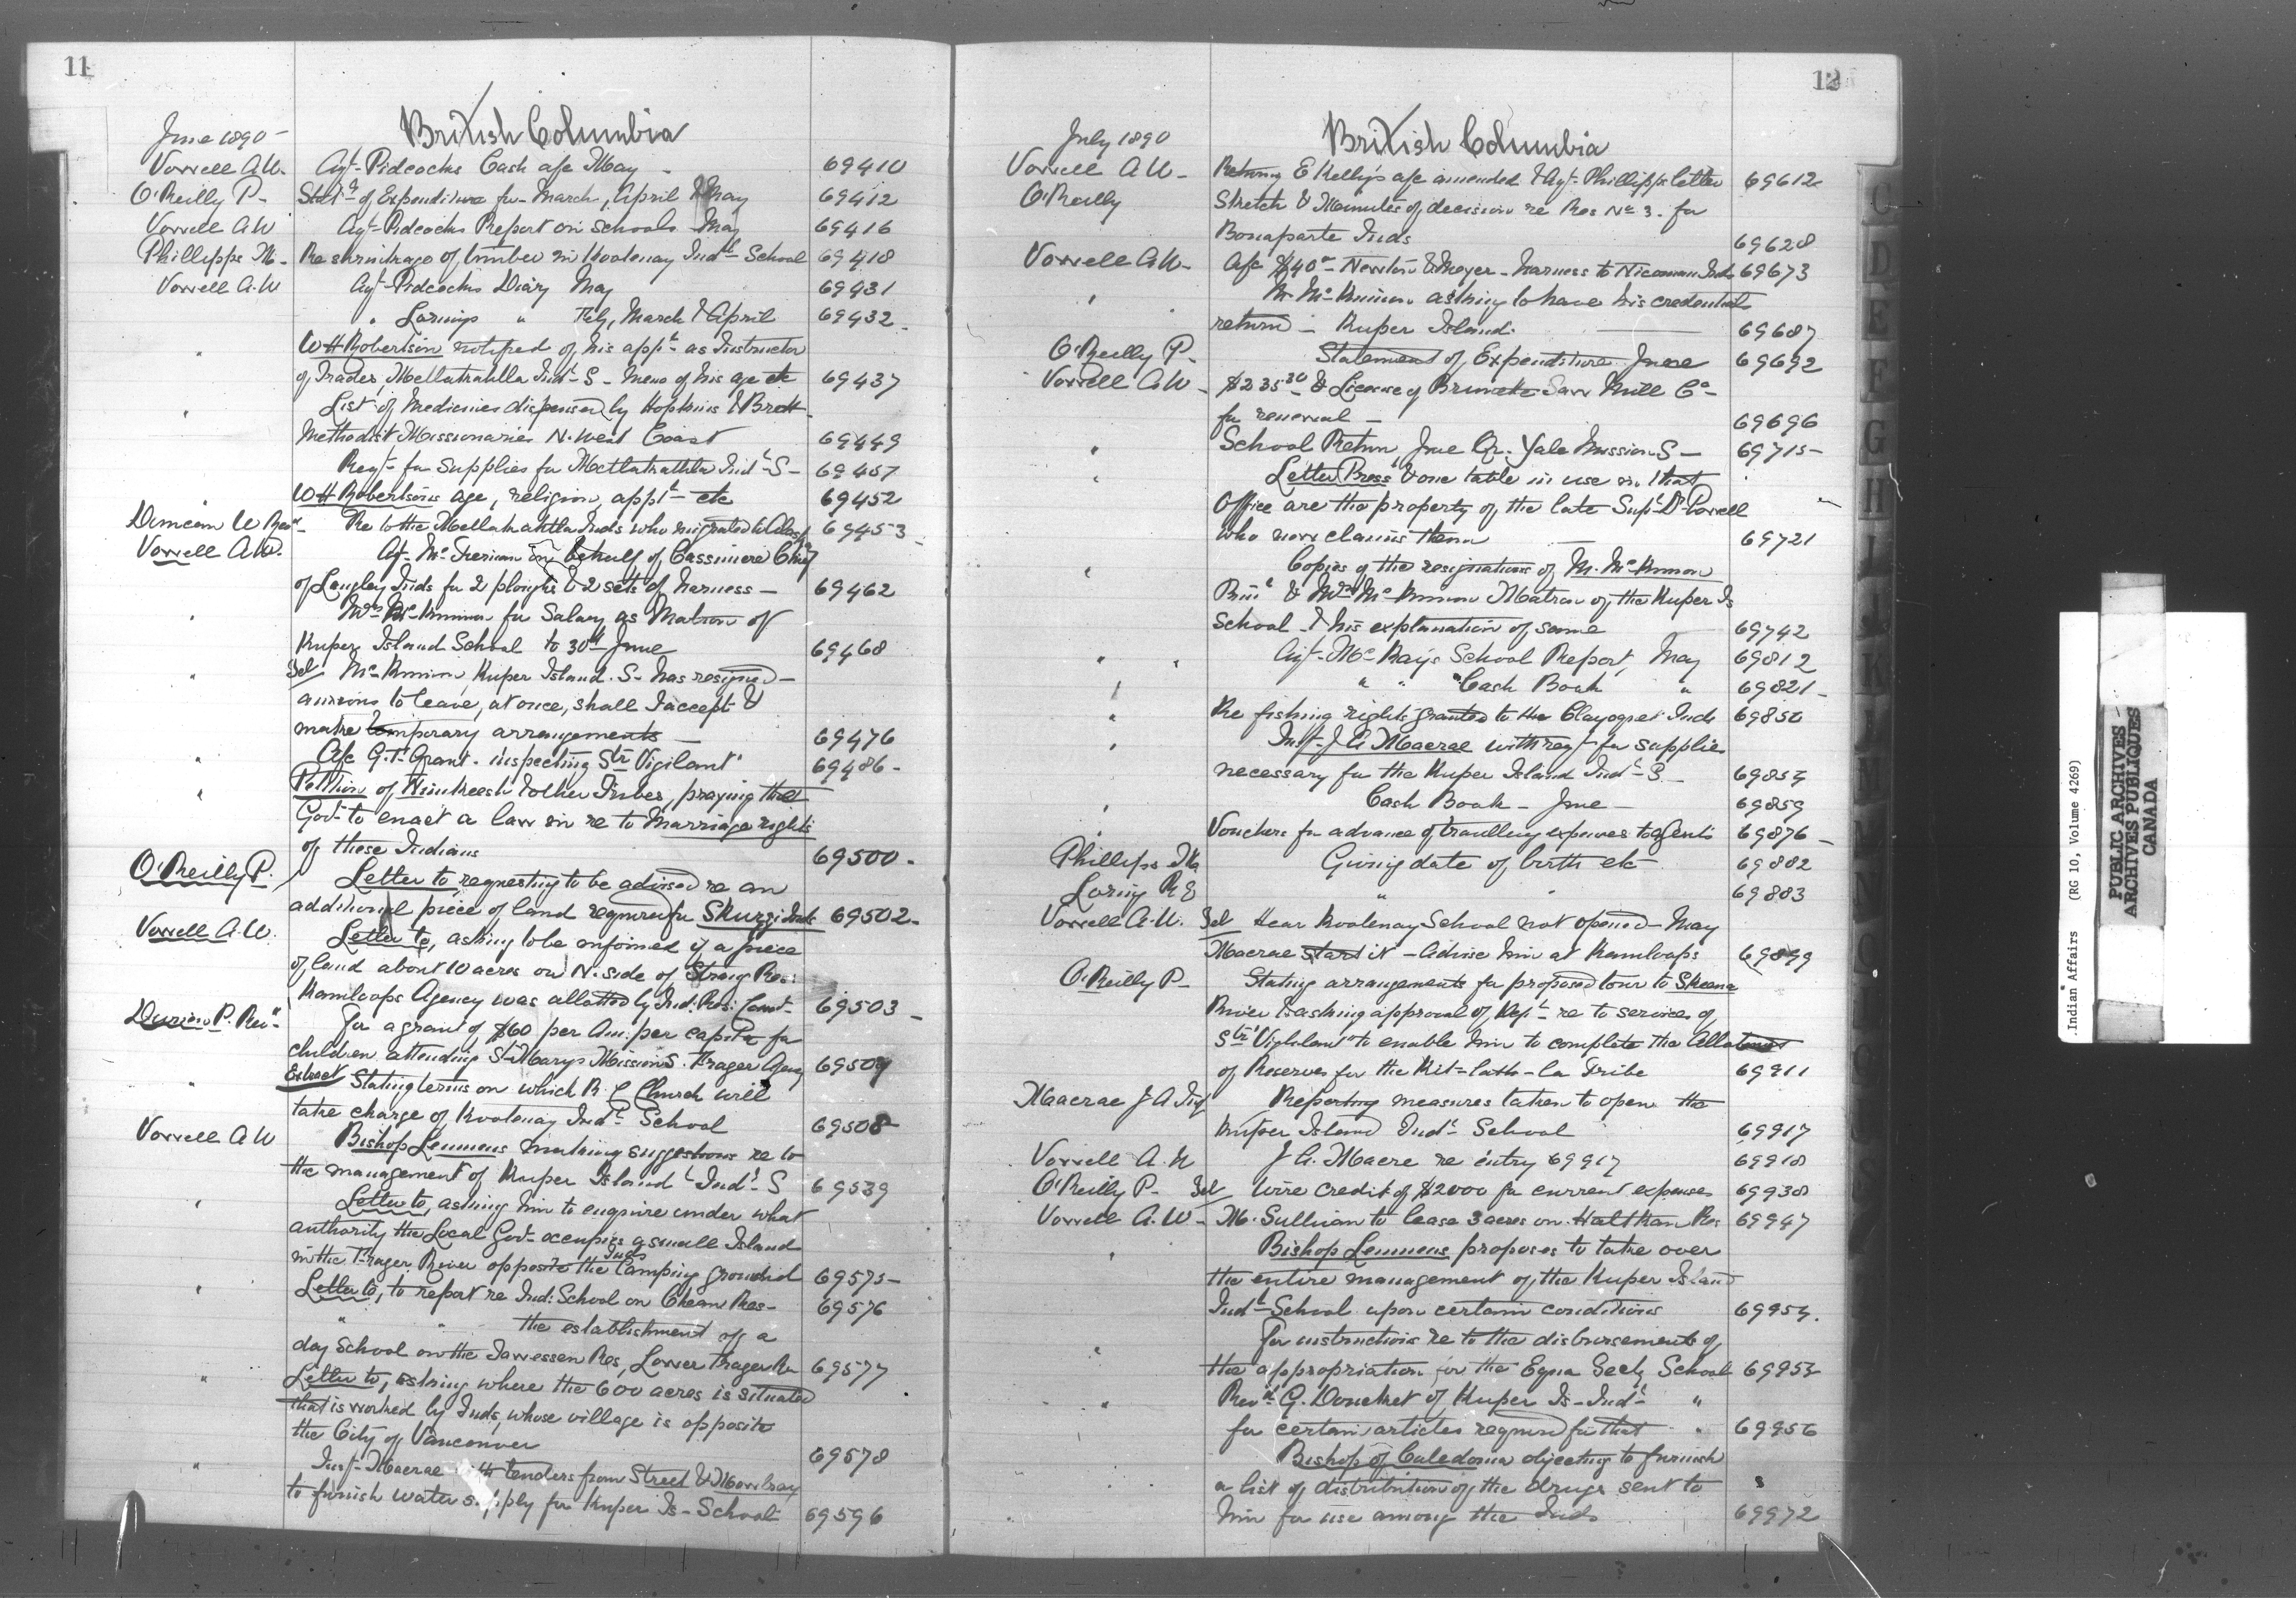 11
June 1890
British Columbia
Vowell A.W. Agt Pidcocks Cash a/c May 69410
O'Reilly P. Statmt of Expenditure for March, April & May 69412
Vowell A W Agt Pidcocks Report on Schools May 69416
Phillipps M. Re shrinkage of timber in Kootenay Indl School 69418
Vowell A.W Agt Pidcocks Diary May 69431
" Lorings " Feb, March & April 69432
" W H Robertson notified of his appt as Instructor
of Trades, Metlakahtla Indl S. Memo of his age etc 69437
" List of Medicines dispensed by Hopkins & Brett
Methodist Missionaries N. West Coast 69449
Reqt for supplies for Metlakahtla Indl S 69457
W H Robertsons age, religion, appt etc 69452
Duncan W Revd Re to the Metlakahtla Inds who migrated to Alaska 69453
Vowell A.W. Agt Mc Tiernan on behalf of Cassimere Chief
of Langley Inds for 2 ploughs & 2 sets of harness 69462
" Mrs McKinnon for Salary as Matron of
Kuper Island School to 30th June 69468
" Tel McKinnon, Kuper Island S. has resigned
anxious to leave, at once, shall I accept &
make temporary arrangements 69476
" A/c G.T. Grant. inspecting Str "Vigilant" 69486
" Petition of Kinkeesh & other Tribes, praying the
Govt to enact a law in re to Marriage rights
of these Indians 69500
O'Reilly P. Letter to, requesting to be advised re an
additional piece of land required for Skuzzi Inds 69502
Vowell A.W. Letter to, asking to be informed if a piece
of land about 10 acres on N. side of Res:
Kamloops Agency was allotted by Ind. Res: Comr 69503
Durieu P. Revd For a grant of $60 per An: per capita for
children attending St Marys Mission S. Fraser Agency 69504
" Extract Stating terms on which R. C Church will
take charge of Kootenay Indl School 69508
Vowell A W Bishop Lemmens making suggestions re to
the management of Kuper Island Indl S 69539
" Letter to, asking him to enquire under what
authority the Local Govt occupies a small Island
in the Fraser River opposite the Inds Camping ground 69575
" Letter to, to report re Ind: School on Cheam Res 69576
" " the establishment of a
day School on the Res, Lower Fraser 69577
" Letter to, asking where the 600 acres is situated
that is worked by Inds, whose village is opposite
the City of Vancouver 69578
" Inspt Macrae with tenders from Street & Mowbray
to furnish water supply for Kuper Is School 69596
12
July 1890
British Columbia
Vowell A W Returng E Kelly's a/c amended & Agt Phillipps letter 69612
O'Reilly Sketch & Minutes of decision re Res No 3. for
Bonaparte Inds 69628
Vowell A.W. A/c $40 Newton & Meyer harness to Nicomen Inds 69673
" Mr McKinnon asking to have his credentials
return Kuper Island. 69687
O'Reilly P. Statement of Expenditure June 69692
Vowell A.W. $235 & License of Brunette Saw Mill Co
for renewal 69696
" School Return June Qr. Yale Mission S 69715
" Letter Press & one table in use in that
Office are the property of the late Supt Dr Powell
who now claims them 69721
" Copies of the resignations of Mr. McKinnon
Prinl & Mrs McKinnon Matron of the Kuper Is
School & his explanation of same 69742
" " Agt McKay's School Report, May 69812
" " " Cash Book " 69821
" Re fishing rights granted to the Clayoquot Inds 69850
" Inspt J A Macrae with reqt for supplies
necessary for the Kuper Island Indl S. 69854
" Cash Book June 69859
" Vouchers for advance of travelling expenses to agents 69876
Phillipps M Giving date of birth etc 69882
Loring R E " 69883
Vowell A.W. Tel Hear Kootenay School not opened May
Macrae start it advise him at Kamloops 69899
O'Reilly P. Stating arrangements for proposed tour to Skeena
River & asking approval of Dept re to services of
Str "Vigilant" to enable him to complete the Allotment
of Reserves for the Kit-lath-la Tribe 69911
Macrae J A Inspt Reporting measures taken to open the
Kuper Island Indl School 69917
Vowell A. W J A. Macre re entry 69917 69918
O'Reilly P. Tel Wire credit of $2000 for current expenses 69938
Vowell A. W. M. Sullivan to lease 3 acres on Haltkan Res 69947
" Bishop Lemmens proposes to take over
the entire management of the Kuper Island
Indl School upon certain conditions 69954
" For instructions re to the disbursement of
the appropriation for the School 69953
" Revd G. Donckel of Kuper Is Indl "
for certain articles required for that " 69956
Bishop of Caledonia objecting to furnish
a list of distribution of the drugs sent to
him for use among the Inds 69972
C
D
E
F
G
H
I
J
K
L
.Indian Affairs (RG 10, Volume 4269)
PUBLIC ARCHIVES
ARCHIVES PUBLIQUES
CANADA